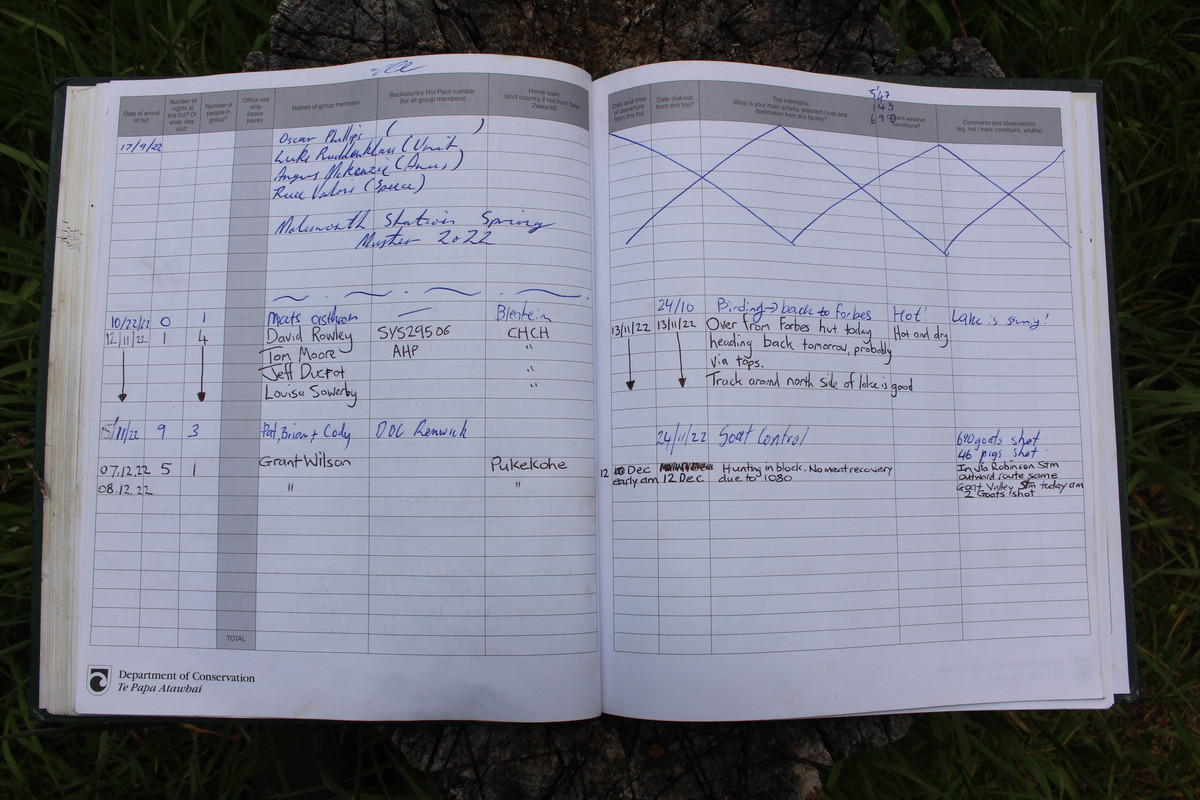 Date of arrival at hut
Number of nights at this hut? Or state 'day visit'
Number of people in group?
Office use only (leave blank)
Names of group members
Backcountry Hut Pass number (for all group members)
Home town (and country if not from New Zealand)
17/9/22 Oscar Phillips ( )
Luke Ruddenklau (Unit
Angus McKenzie (Anus)
(Specc)
Molesworth Station Spring
Muster 2022
10/22/22 0 1 Blenheim
12/11/22 1 4 David Rowley SYS29506 CHCH
Tom Moore AHP "
Jeff "
Louisa Sowerby "
11/22 9 3 Pat, Brian + Cody DOC Renwick
07.12.22 5 1 Grant Wilson Pukekohe
08.12.22 " "
TOTAL
Department of Conservation
Te Papa Atawhai
Date and time of departure from this hut
Date due out from this trip?
Trip intentions
What is your main activity, planned route and destination from this facility?
weather conditions?
Comments and observations
(eg. hut / track conditions, wildlife)
647
43
690
24/10 Birding → back to Forbes Hot! Lake is
13/11/22 13/11/22 Over from Forbes hut today Hot and dry
heading back tomorrow, probably
via tops.
Track around north side of lake is good
24/11/22 Goat Control 690 goats shot
46 pigs shot
12 Dec Hunting in block. No meat recovery In via Robinson Stm
early am 12 Dec due to 1080 outward route same
Goat Valley Stm today am
2 Goats shot